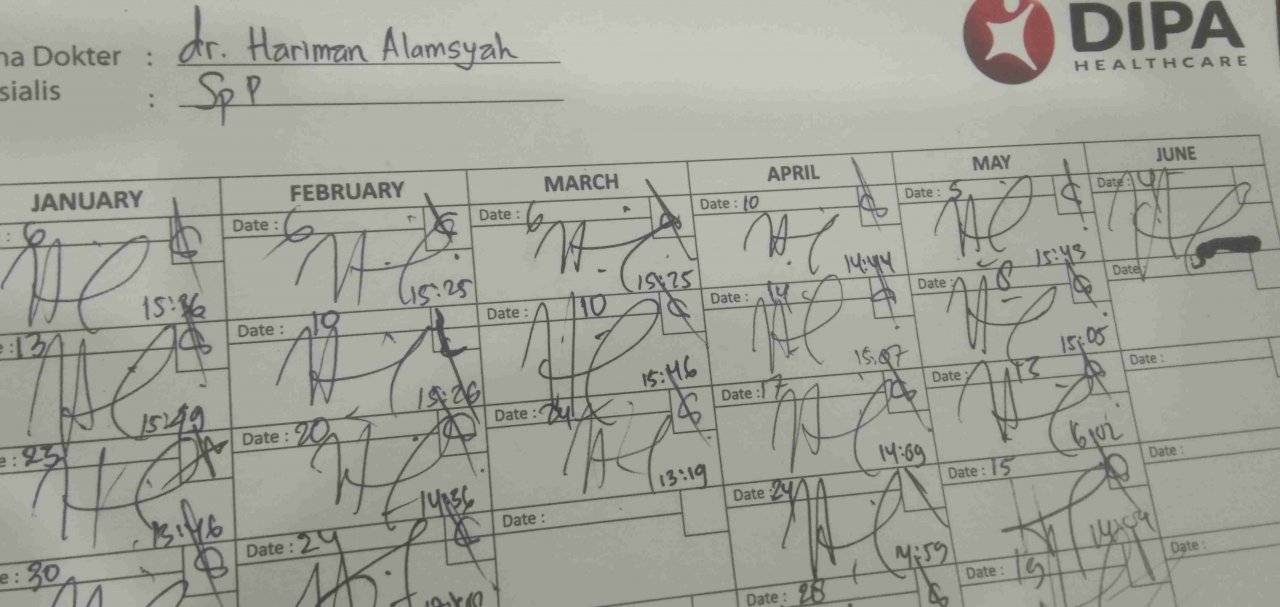 na Dokter : dr. Hariman Alamsyah
sialis : Sp P
DIPA
HEALTHCARE
JANUARY FEBRUARY MARCH APRIL MAY JUNE
: 6 Date : 6 Date : 6 Date : 10 Date : 5 Date : 4
15:36 15:25 15:25 14:44 15:43
e : 13 Date : 10 Date : 10 Date : 14 Date : 8 Date :
15:26 15:46 15:07 15:05
e : 23 Date : 20 Date : 24 Date : 17 Date : 13 Date :
13:46 14:36 13:19 14:09 16,02
e : 30 Date : 24 Date : Date : 24 Date : 15 Date :
14:59
Date : 28 Date : 19 Date :